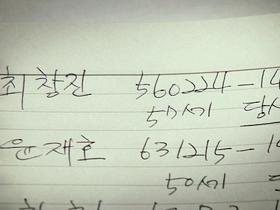 최창진 560224-14
57세
윤재호 631215-1
50세